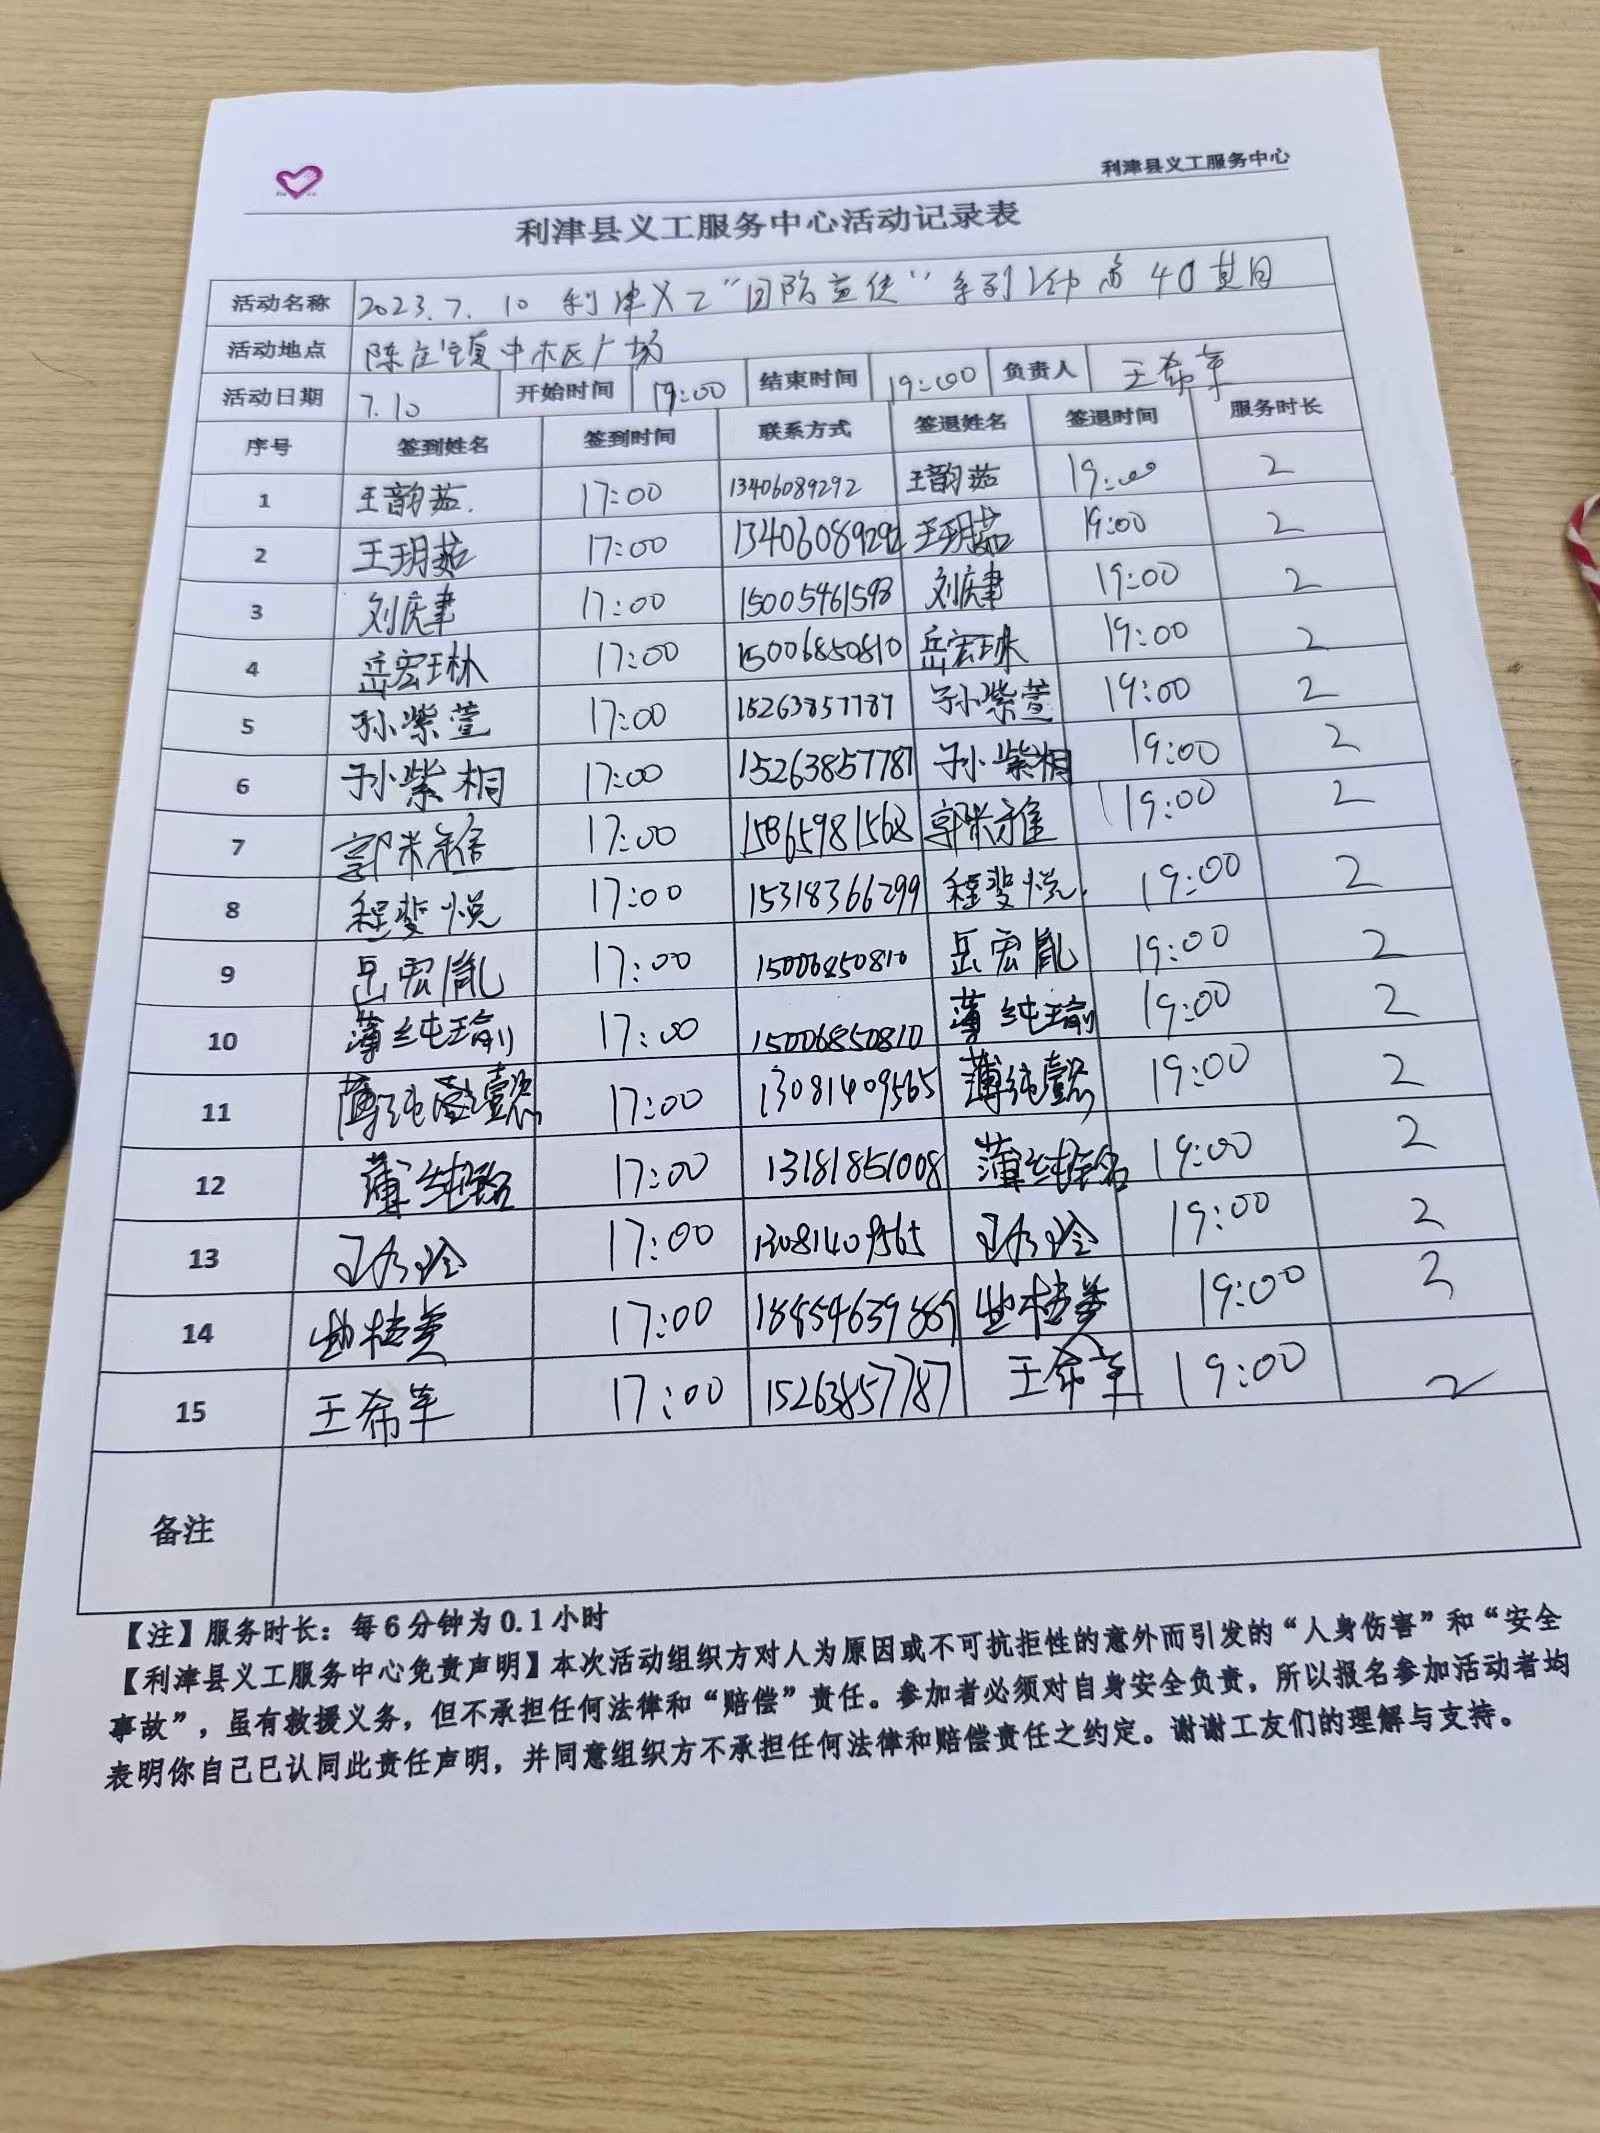 利津县义工服务中心
利津县义工服务中心活动记录表
活动名称 2023.7.10 利津义工“团队宣传”系列活动第40期
活动地点 陈庄镇中木区广场
活动日期 7.10 开始时间 19:00 结束时间 19:00 负责人 王希军
序号 签到姓名 签到时间 联系方式 签退姓名 签退时间 服务时长
1 王韵茹 17:00 13406089292 王韵茹 19:00 2
2 王玥茹 17:00 13406089292 王玥茹 19:00 2
3 刘庆聿 17:00 15005461593 刘庆聿 19:00 2
4 岳宏琳 17:00 15006850810 岳宏琳 19:00 2
5 孙紫萱 17:00 15263857787 孙紫萱 19:00 2
6 孙紫桐 17:00 15263857787 孙紫桐 19:00 2
7 17:00 15865981568 19:00 2
8 程斐悦 17:00 15318366299 程斐悦 19:00 2
9 岳宏胤 17:00 15006850810 岳宏胤 19:00 2
10 薄纯瑜 17:00 15006850810 薄纯瑜 19:00 2
11 薄纯懿 17:00 13081409565 薄纯懿 19:00 2
12 薄纯铭 17:00 13181851008 薄纯铭 19:00 2
13 17:00 13081409565 19:00 2
14 17:00 18854639889 19:00 2
15 王希军 17:00 15263857787 王希军 19:00 2
备注
【注】服务时长：每6分钟为0.1小时
【利津县义工服务中心免责声明】本次活动组织方对人为原因或不可抗拒性的意外而引发的“人身伤害”和“安全
事故”，虽有救援义务，但不承担任何法律和“赔偿”责任。参加者必须对自身安全负责，所以报名参加活动者均
表明你自己已认同此责任声明，并同意组织方不承担任何法律和赔偿责任之约定。谢谢工友们的理解与支持。